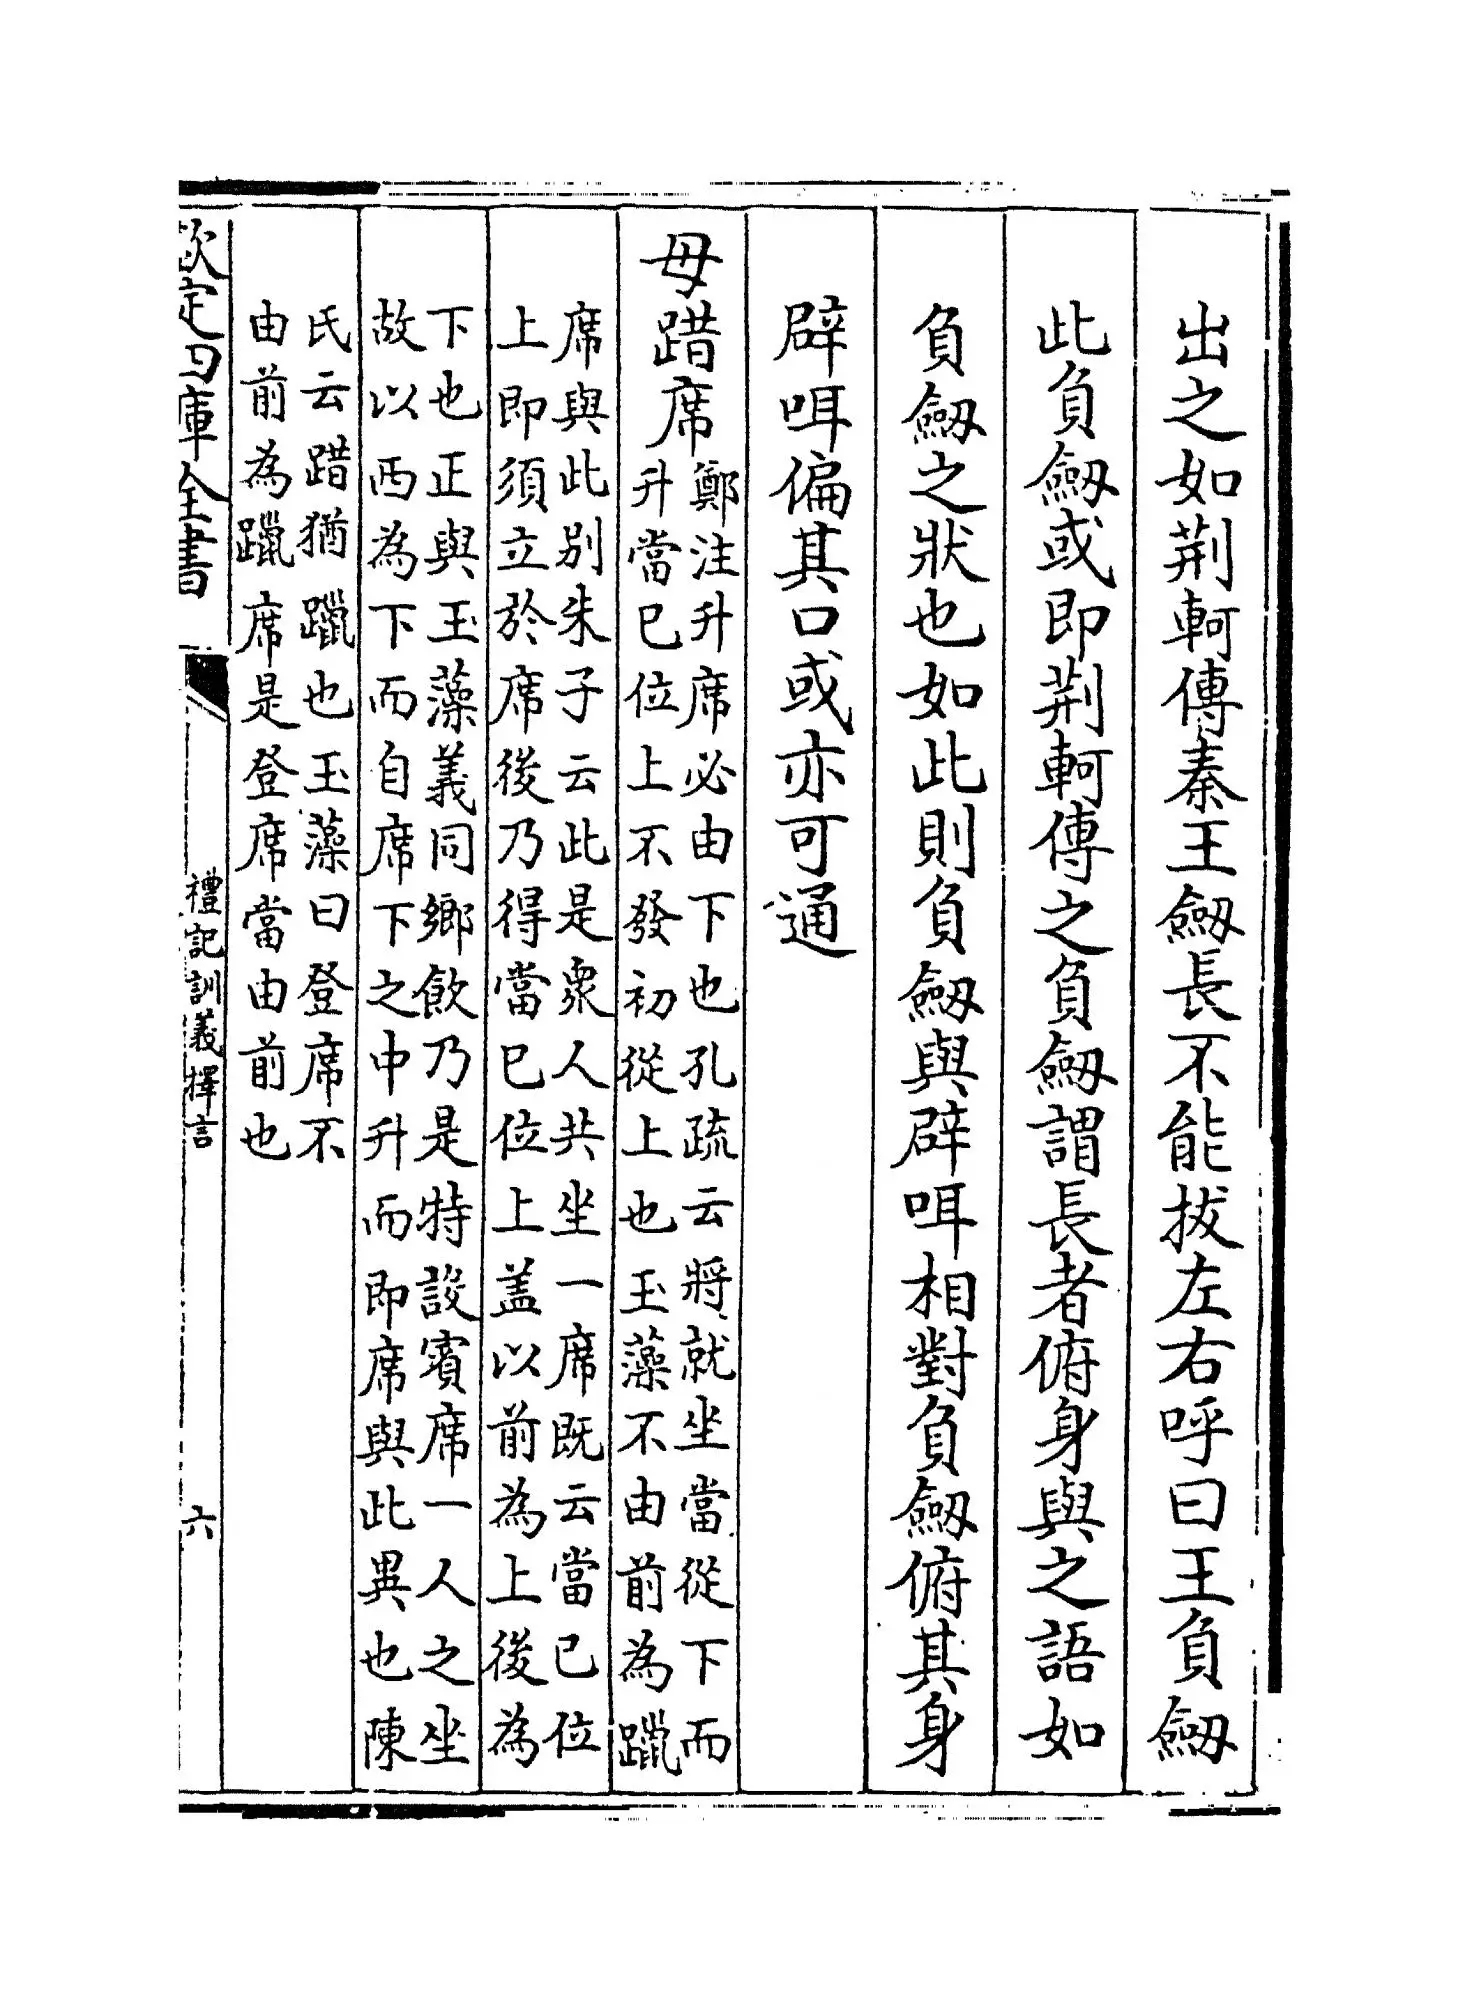 出之如荆軻傳秦王劔長不能拔左右呼曰王負劔
此負劔或即荆軻傳之負劔謂長者俯身與之語如
負劔之狀也如此則負劔與辟咡相對負劔俯其身
辟咡偏其口或亦可通
毋踖席
鄭注升席必由下也孔疏云將就坐當從下而
升當己位上不發初從上也玉藻不由前為躐
席與此别朱子云此是衆人共坐一席既云當己位
上即須立於席後乃得當己位上盖以前為上後為
下也正與玉藻義同鄉飲乃是特設賓席一人之坐
故以西為下而自席下之中升而即席與此異也陳
氏云踖猶躐也玉藻曰登席不
由前為躐席是登席當由前也
欽定四庫全書
禮記訓義擇言
六